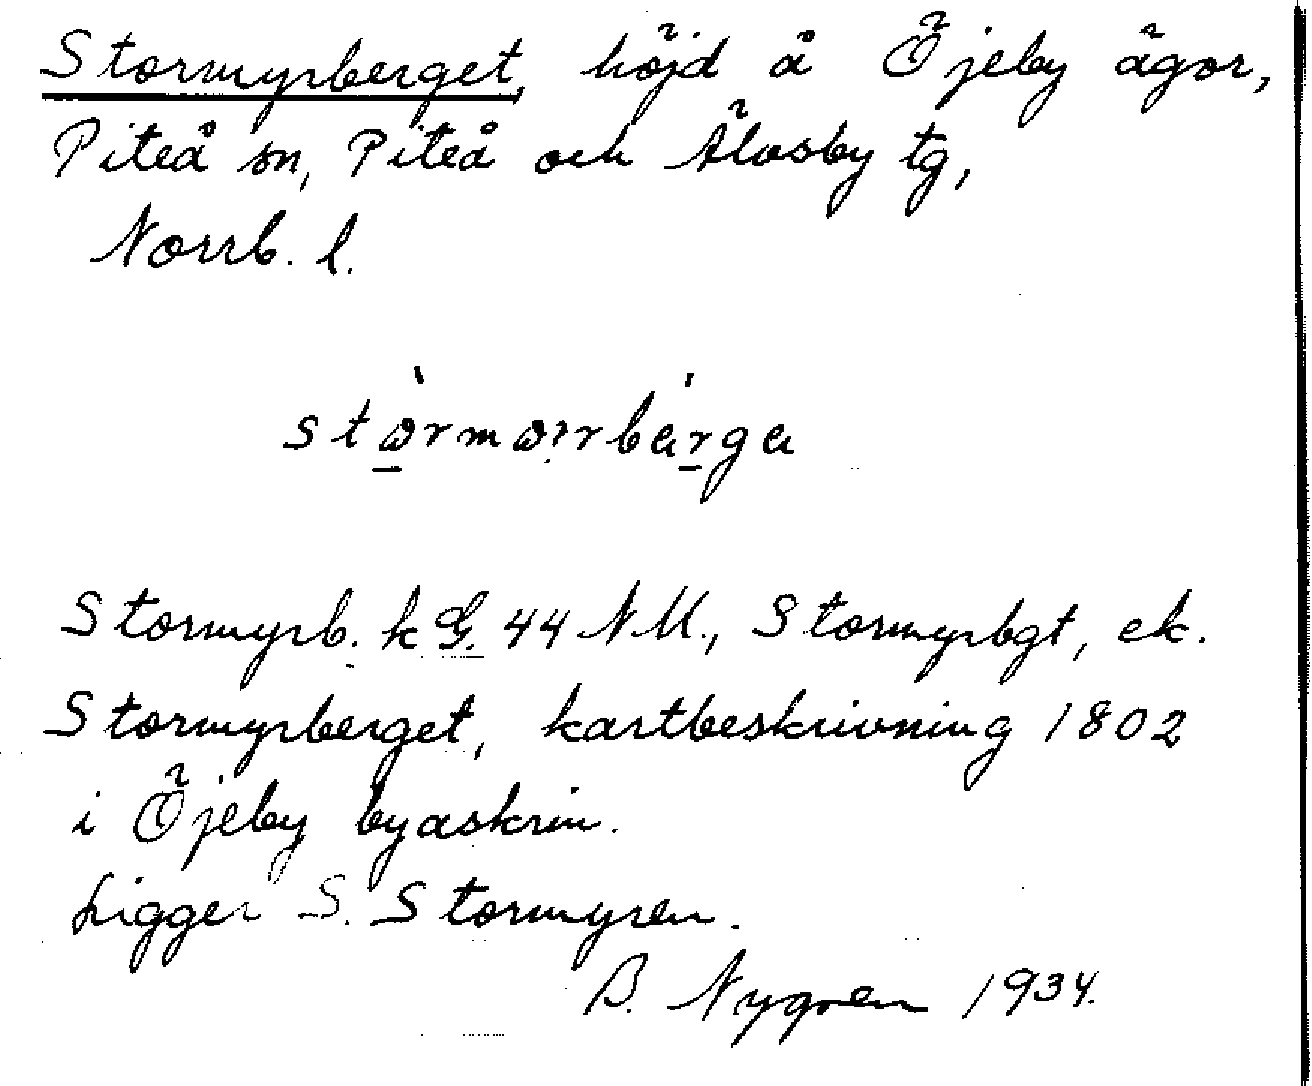 Stormyrberget, höjd å Öjeby ägor,
Piteå sn, Piteå och Älvsby tg,
Norrb. l.
Stormyrb. k G. 44 NM., Stormyrbgt, ek.
Stormyrberget, kartbeskrivning 1802
i Öjeby byaskrin.
Ligger S. Stormyren.
B. Nygren 1934.